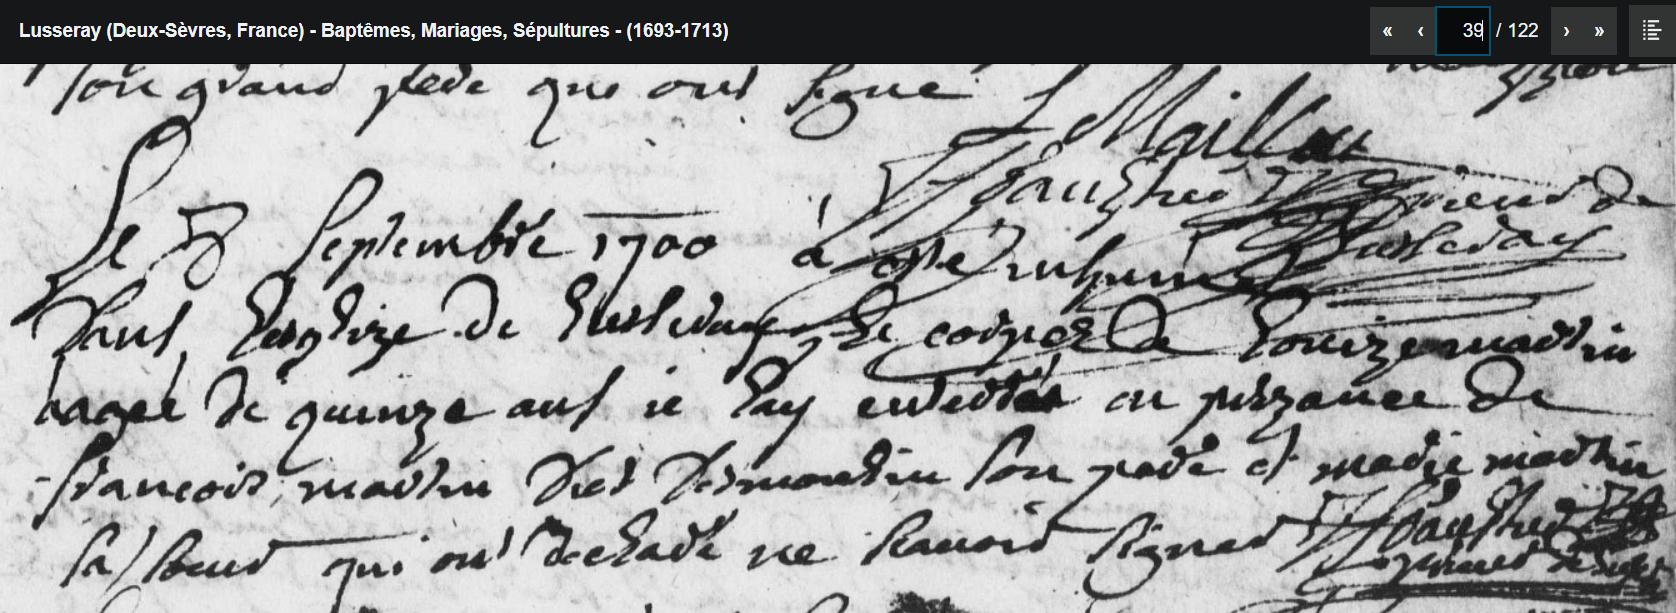 Lusseray (Deux-Sèvres, France) - Baptêmes, Mariages, Sépultures - (1693-1713)
« ‹ 39 / 122 › »
son grand pere qui ont signé
Maillou
Le 8 Septembre 1700 a esté inhumé
dans l'esglize de Lusseray le corps de Louize martin
aagéé de quinze ans je l'ay enterréé en presance de
françois martin son pere et marie martin
sa soeur qui ont declaré ne scavoir signer